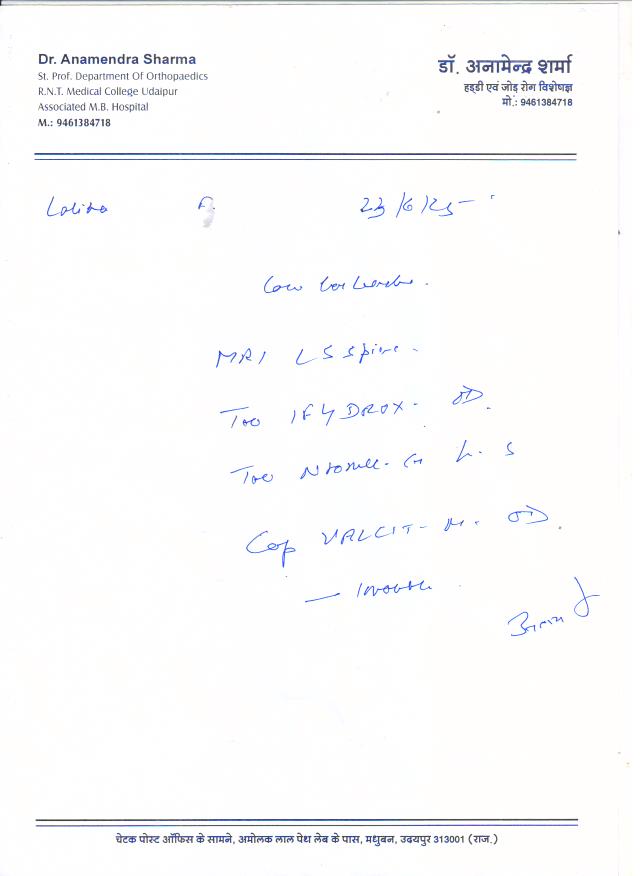 Dr. Anamendra Sharma
St. Prof. Department Of Orthopaedics
R.N.T. Medical College Udaipur
Associated M.B. Hospital
M.: 9461384718
डॉ. अनामेन्द्र शर्मा
हड्डी एवं जोड़ रोग विशेषज्ञ
मो.: 9461384718
Lalita F. 23/6/25
MRI LS Spine
OD
H. S
Cap VALCIT-M. OD
चेटक पोस्ट ऑफिस के सामने, अमोलक लाल पेथ लेब के पास, मधुबन, उदयपुर 313001 (राज.)